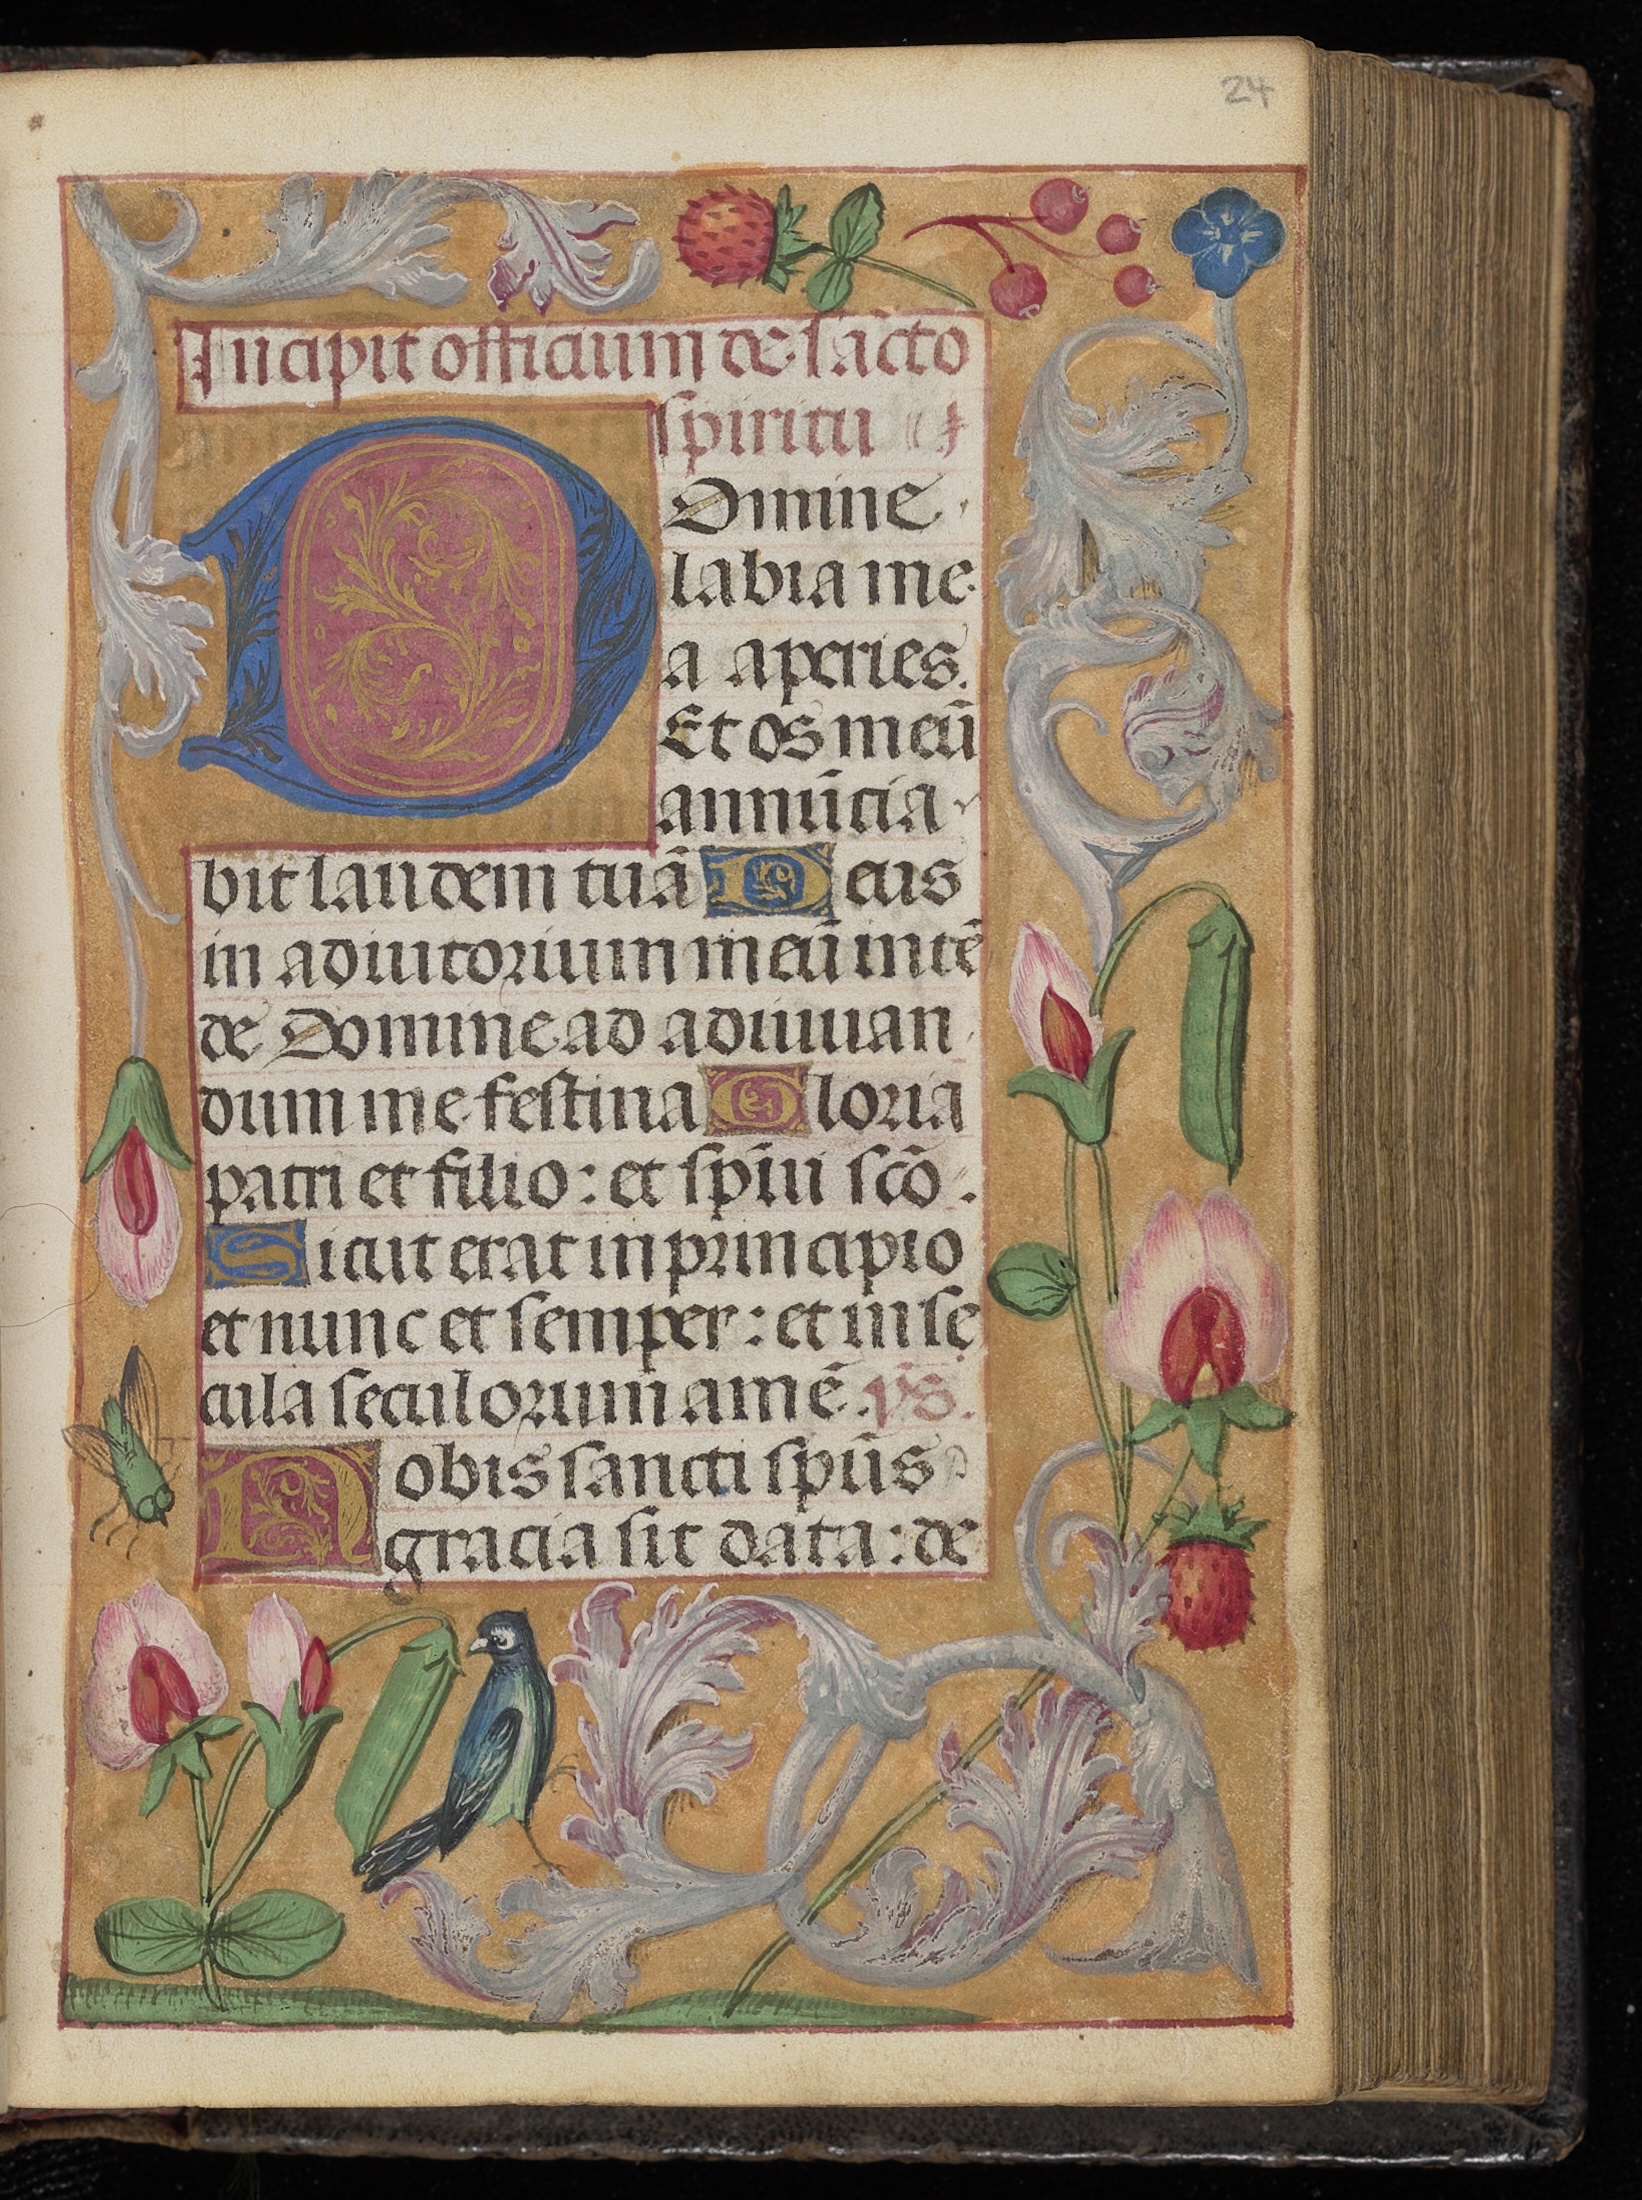 24
Incipit officium de sācto
spiritu
Domine
labia me
a aperies.
Et os meū
annūcia
bit laudem tuā Deus
in adiutorium meū intē
de Domine ad adiuuan
dum me festina Gloria
patri et filio: et spūi scō.
Sicut erat in principio
et nunc et semper: et in se
cula seculorum amē. vs.
Nobis sancti spūs
gracia sit data: de